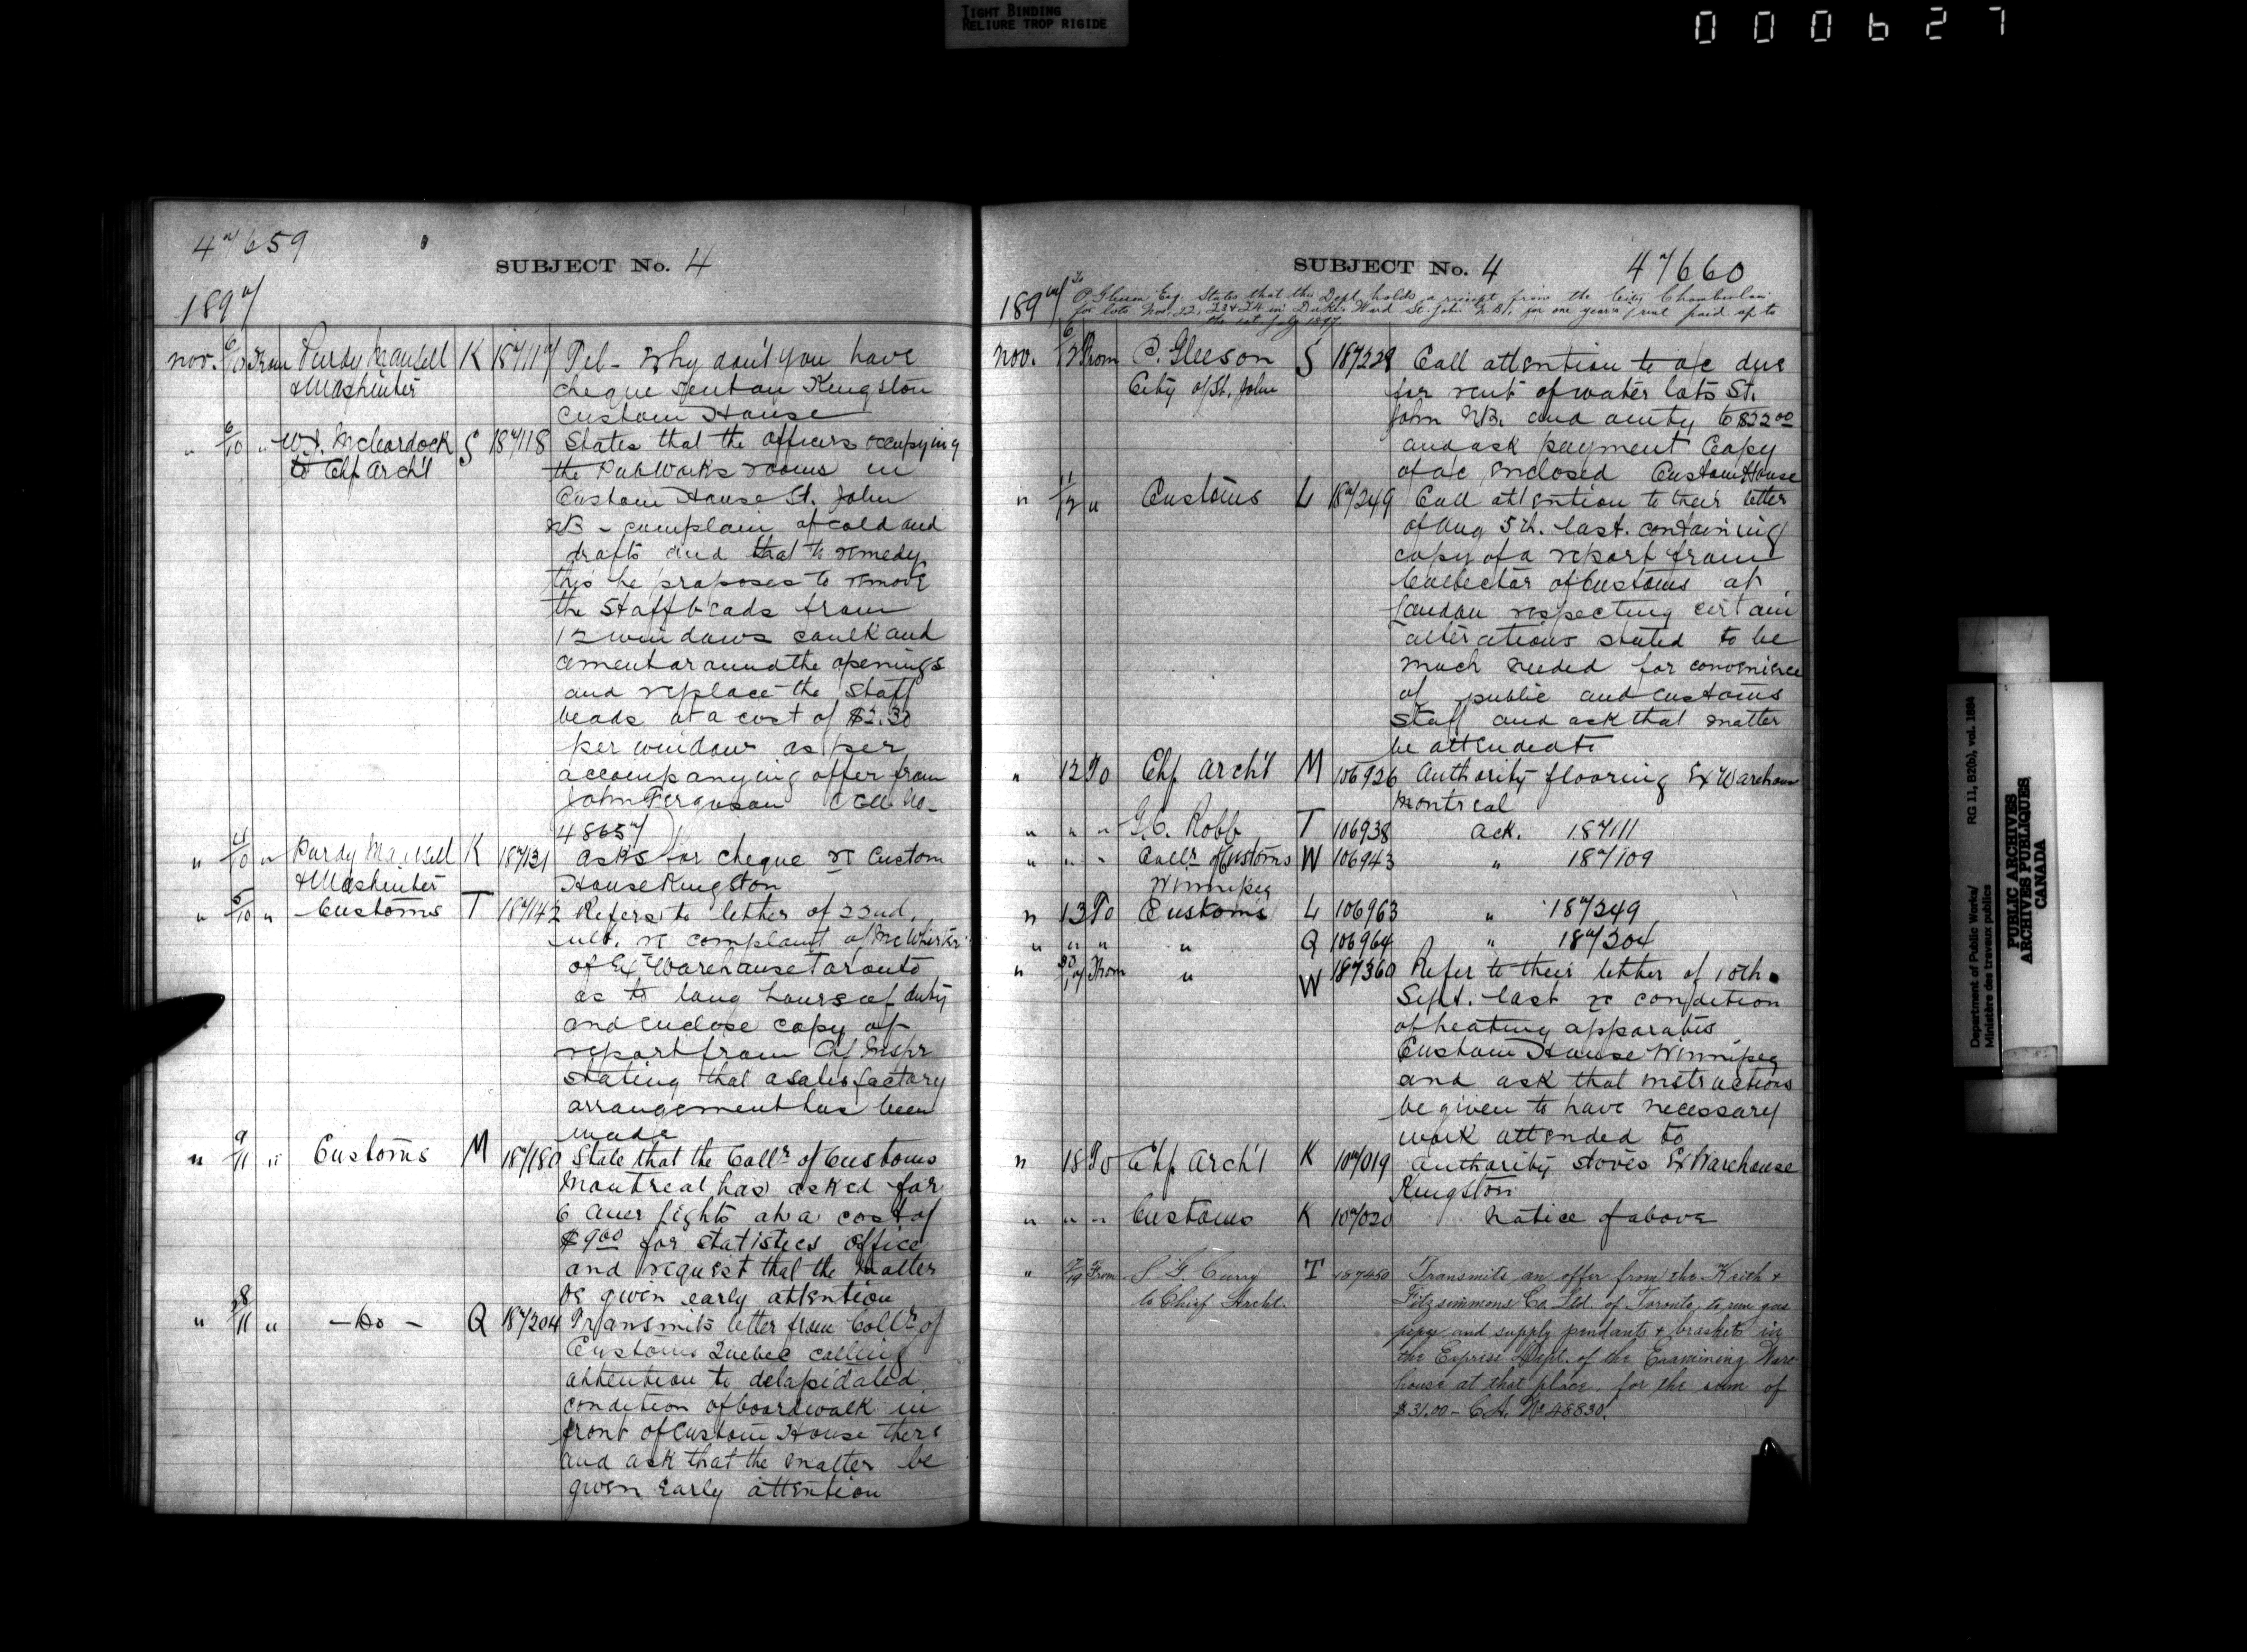 TIGHT BINDING
RELIURE TROP RIGIDE
000627
47659
SUBJECT No. 4
1897
Nov. 6/10 From Purdy Mansell K 187117 Tel - Why don't you have
& Mashinter cheque sent on Kingston
Custom House
" 6/10 " W.J. McCordock S 187118 States that the officers occupying
to Chf Arch't the Pub Works rooms in
Custom House St. John
NB - complain of cold and
drafts and that to remedy
this he proposes to remove
the staff beads from
12 windows caulk and
cement around the openings
and replace the staff
beads at a cost of $2.30
per window as per
accompanying offer from
John Ferguson
48657
" 4/10 " Purdy Mansell K 187131 Asks for cheque re Custom
& Mashinter House Kingston
" 5/10 " Customs T 187142 Refers to letter of 22nd.
ult. re complaint of McWhirter
of Ex Warehouse Toronto
as to long hours of duty
and enclose copy of
report from Chf Inspr
stating that a satisfactory
arrangement has been
made
" 9/11 " Customs M 187180 State that the Collr of Customs
Montreal has asked for
6 Auer lights at a cost of
$9.00 for statistics office
and request that the matter
be given early attention
" 8/11 " - Do - Q 187204 Transmits letter from Collr of
Customs Quebec calling
attention to delapidated
condition of boardwalk in
front of Custom House there
and ask that the matter be
given early attention
SUBJECT No. 4 47660
1897 To
P. Gleeson Esq. States that this Dept. holds a receipt from the City Chamberlain
for lots Nos. 22, 23 & 24 in Dukes Ward St. John N.B. for one year's rent paid up to
the 1st July 1897.
Nov. 6/12 From P. Gleeson S 187229 Call attention to a/c due
City of St. John for rent of water lots St.
John N.B. and amtg to $22.00
and ask payment Copy
of a/c enclosed Custom House
" 11/12 " Customs L 187249 Call attention to their letter
of Aug 5th. last. containing
copy of a report from
Collector of Customs at
London respecting certain
alterations stated to be
much needed for convenience
of public and customs
staff and ask that matter
be attended to
" 12 To Chf Arch't M 106926 Authority flooring Ex Warehouse
Montreal
" " " G.C. Robb T 106938 ack. 187111
" " " Collr of Customs W 106943 " 187109
Winnipeg
" 13 To Customs L 106963 " 187249
" " " " Q 106964 " 187204
" From " W 187360 Refer to their letter of 10th.
Sept. last re condition
of heating apparatus
Custom House Winnipeg
and ask that instructions
be given to have necessary
work attended to
" 18 To Chf Arch't K 107019 Authority stoves Ex Warehouse
Kingston
" " " Customs K 107020 Notice of above
" 17/19 From S. G. Curry T 187450 Transmits an offer from the Keith &
to Chief Archt. Fitzsimmons Co. Ltd. of Toronto, to run gas
pipe and supply pendants & brackets in
the Express Dept. of the Examining Ware-
house at that place, for the sum of
$31.00 - C.A. No 48830.
Department of Public Works/
Ministère des travaux publics
RG 11, B2(b), vol. 1884
PUBLIC ARCHIVES
ARCHIVES PUBLIQUES
CANADA